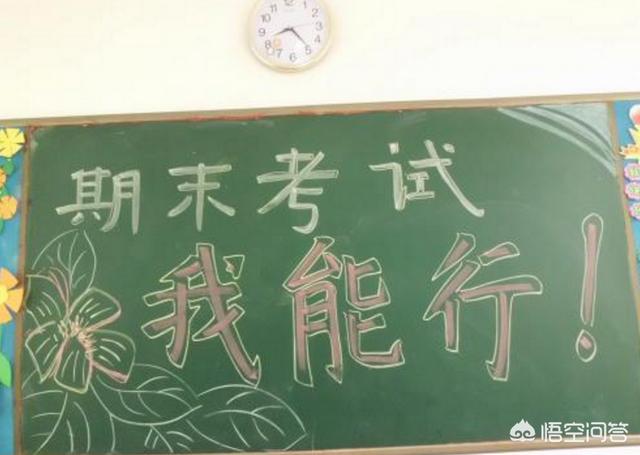 期末考试
我能行！
悟空问答